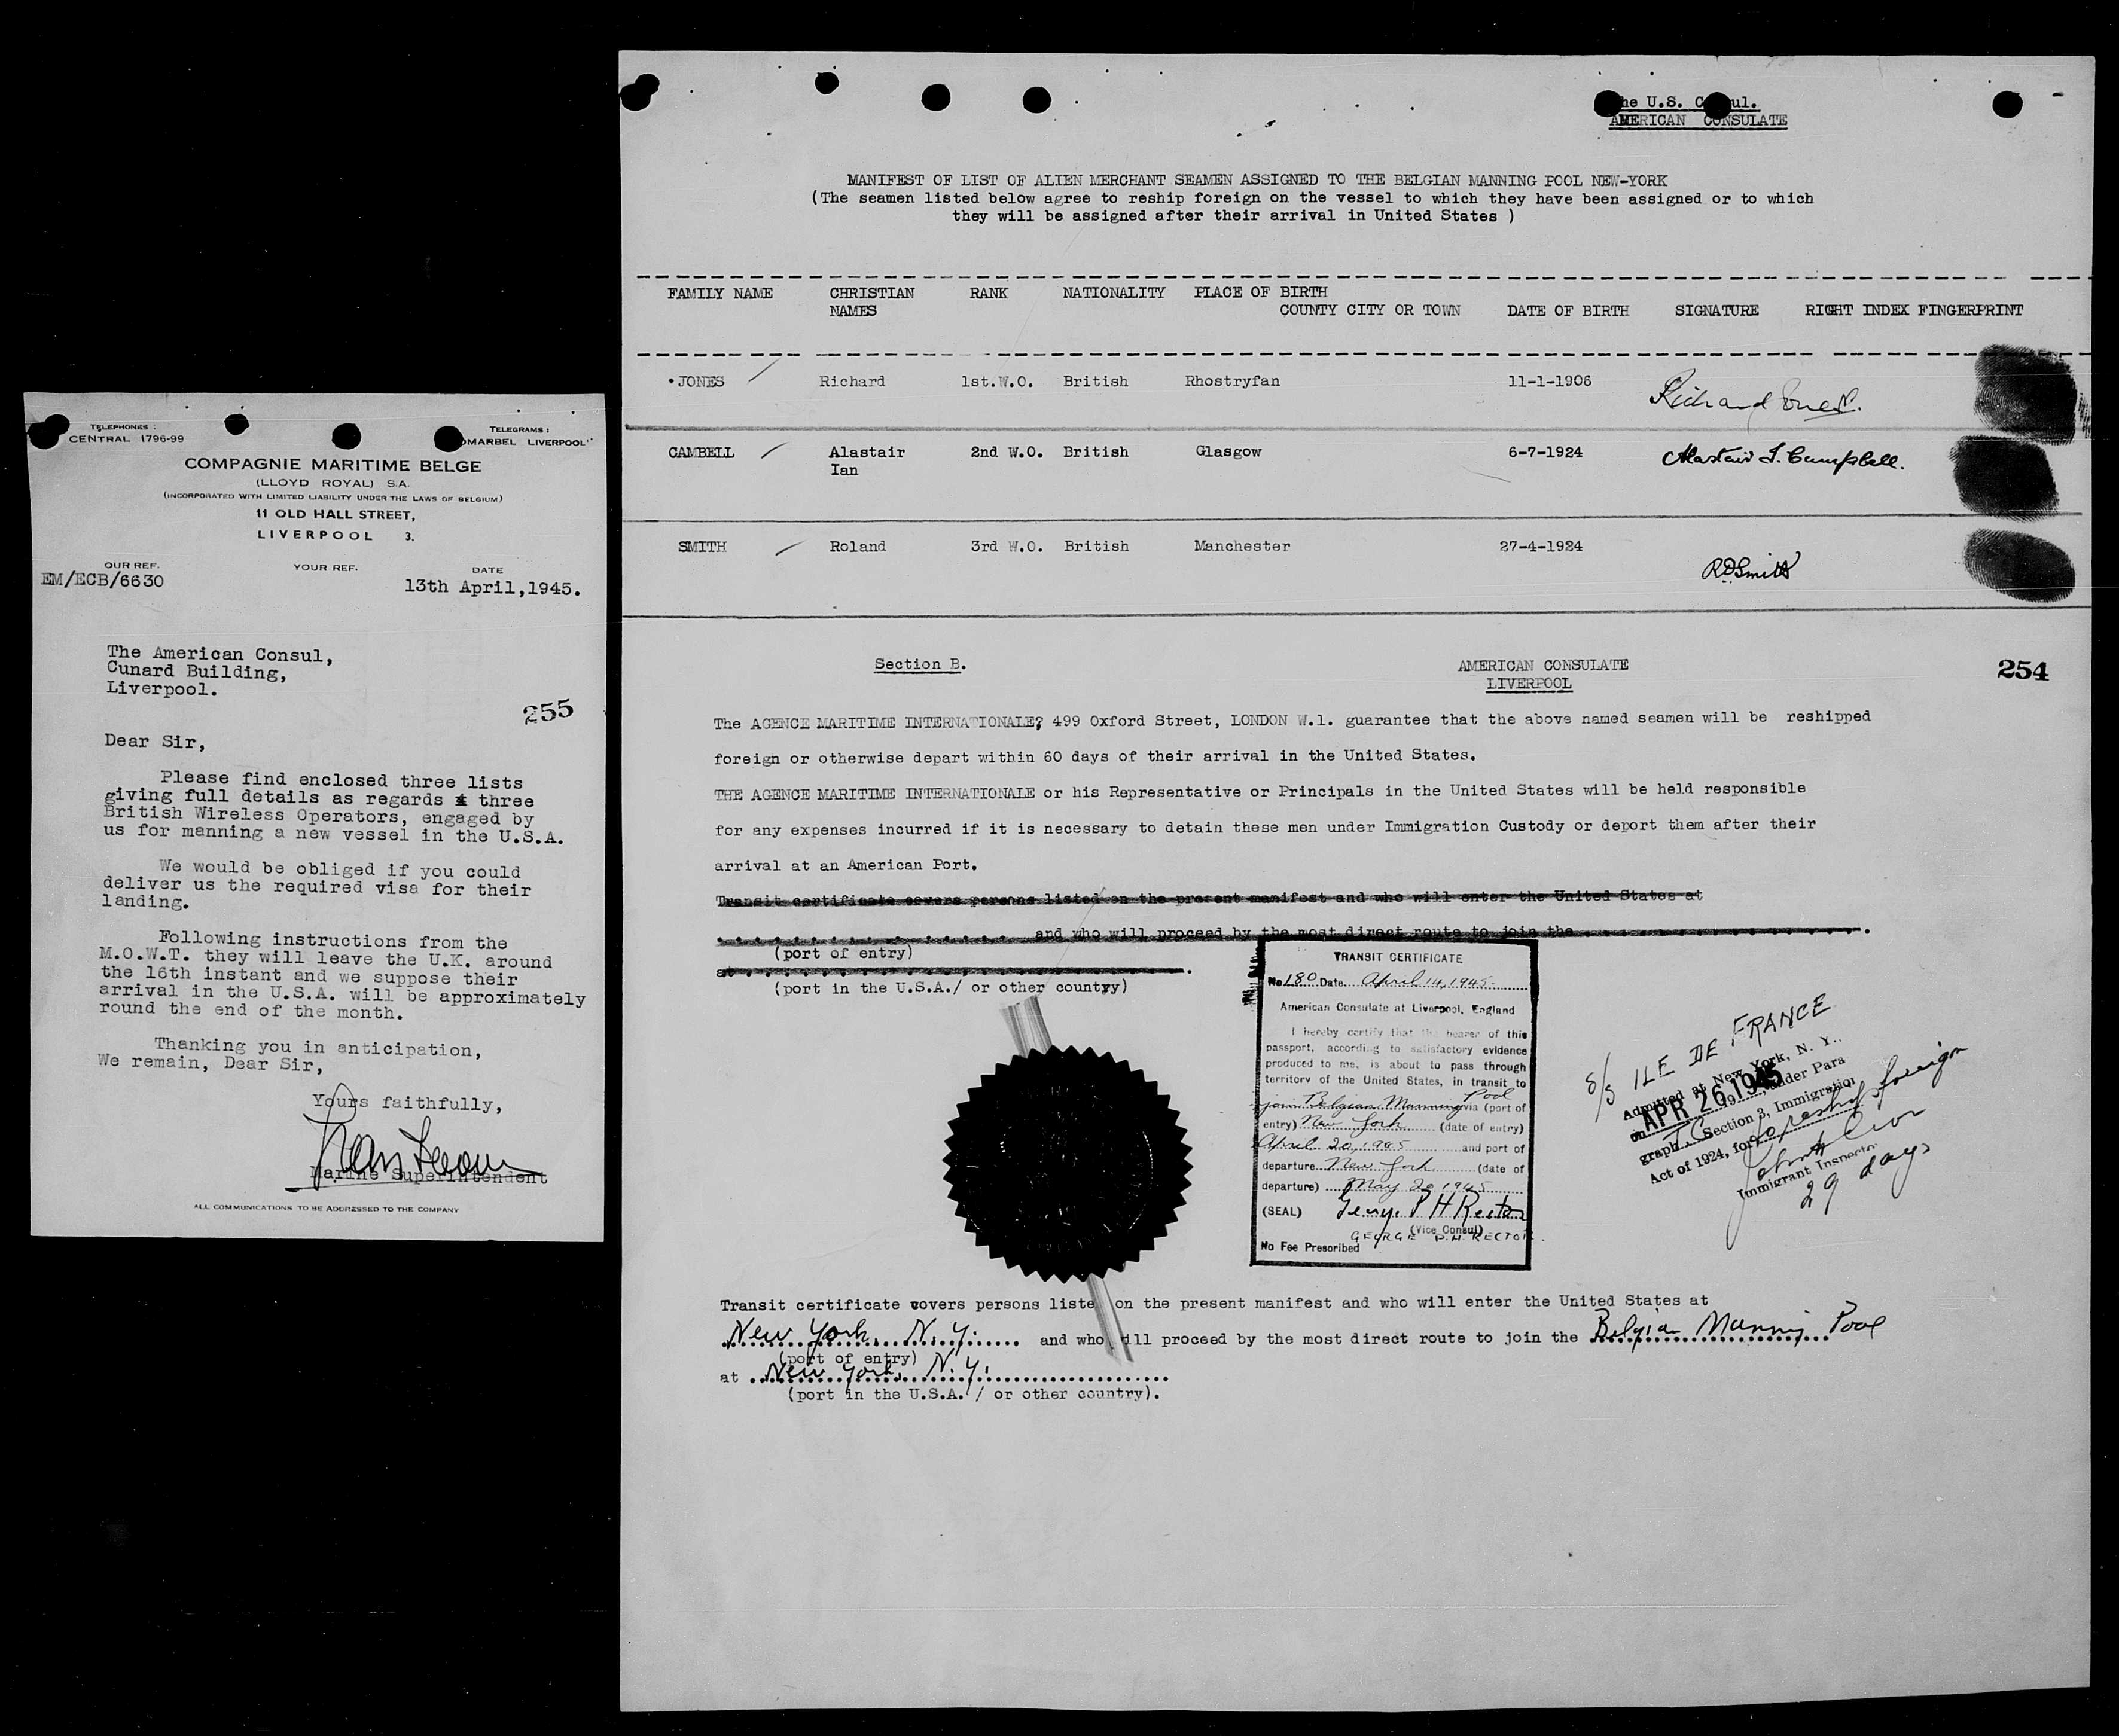 TELEPHONES :
CENTRAL 1796-99
TELEGRAMS :
OMARBEL LIVERPOOL"
COMPAGNIE MARITIME BELGE
(LLOYD ROYAL) S.A.
(INCORPORATED WITH LIMITED LIABILITY UNDER THE LAWS OF BELGIUM)
11 OLD HALL STREET,
LIVERPOOL 3.
OUR REF. YOUR REF. DATE
EM/ECB/6630 13th April,1945.
The American Consul,
Cunard Building,
Liverpool.
255
Dear Sir,
Please find enclosed three lists
giving full details as regards three
British Wireless Operators, engaged by
us for manning a new vessel in the U.S.A.
We would be obliged if you could
deliver us the required visa for their
landing.
Following instructions from the
M.O.W.T. they will leave the U.K. around
the 16th instant and we suppose their
arrival in the U.S.A. will be approximately
round the end of the month.
Thanking you in anticipation,
We remain, Dear Sir,
Yours faithfully,
Marine Superintendent
ALL COMMUNICATIONS TO BE ADDRESSED TO THE COMPANY
he U.S. C ul.
AMERICAN CONSULATE
MANIFEST OF LIST OF ALIEN MERCHANT SEAMEN ASSIGNED TO THE BELGIAN MANNING POOL NEW-YORK
(The seamen listed below agree to reship foreign on the vessel to which they have been assigned or to which
they will be assigned after their arrival in United States )
FAMILY NAME CHRISTIAN NAMES RANK NATIONALITY PLACE OF BIRTH COUNTY CITY OR TOWN DATE OF BIRTH SIGNATURE RIGHT INDEX FINGERPRINT
JONES Richard 1st.W.O. British Rhostryfan 11-1-1906 Richard Jones.
CAMBELL Alastair Ian 2nd W.O. British Glasgow 6-7-1924 Alastair I. Campbell.
SMITH Roland 3rd W.O. British Manchester 27-4-1924 R.D.Smith
Section B. AMERICAN CONSULATE
LIVERPOOL
254
The AGENCE MARITIME INTERNATIONALE, 499 Oxford Street, LONDON W.1. guarantee that the above named seamen will be reshipped
foreign or otherwise depart within 60 days of their arrival in the United States.
THE AGENCE MARITIME INTERNATIONALE or his Representative or Principals in the United States will be held responsible
for any expenses incurred if it is necessary to detain these men under Immigration Custody or deport them after their
arrival at an American Port.
Transit certificate covers persons listed on the present manifest and who will enter the United States at
and who will proceed by the most direct route to join the
(port of entry)
at
(port in the U.S.A./ or other country)
TRANSIT CERTIFICATE
No 180 Date April 14, 1945
American Consulate at Liverpool, England
I hereby certify that the bearer of this
passport, according to satisfactory evidence
produced to me, is about to pass through
territory of the United States, in transit to
join Belgian Manning Pool via (port of
entry) New York (date of entry)
April 20, 1945 and port of
departure New York (date of
departure) May 20 1945
(SEAL) George P H Rector
(Vice Consul)
GEORGE P.H. RECTOR
No Fee Prescribed
S/S ILE DE FRANCE
Admitted at New York, N. Y.,
on APR 26 1945 19 , under Para
graph , Section 3, Immigration
Act of 1924, for to reship foreign
Immigrant Inspector
29 days
Transit certificate covers persons liste on the present manifest and who will enter the United States at
New York, N.Y. and who ill proceed by the most direct route to join the Belgian Manning Pool
(port of entry)
at New York, N.Y.
(port in the U.S.A. / or other country).